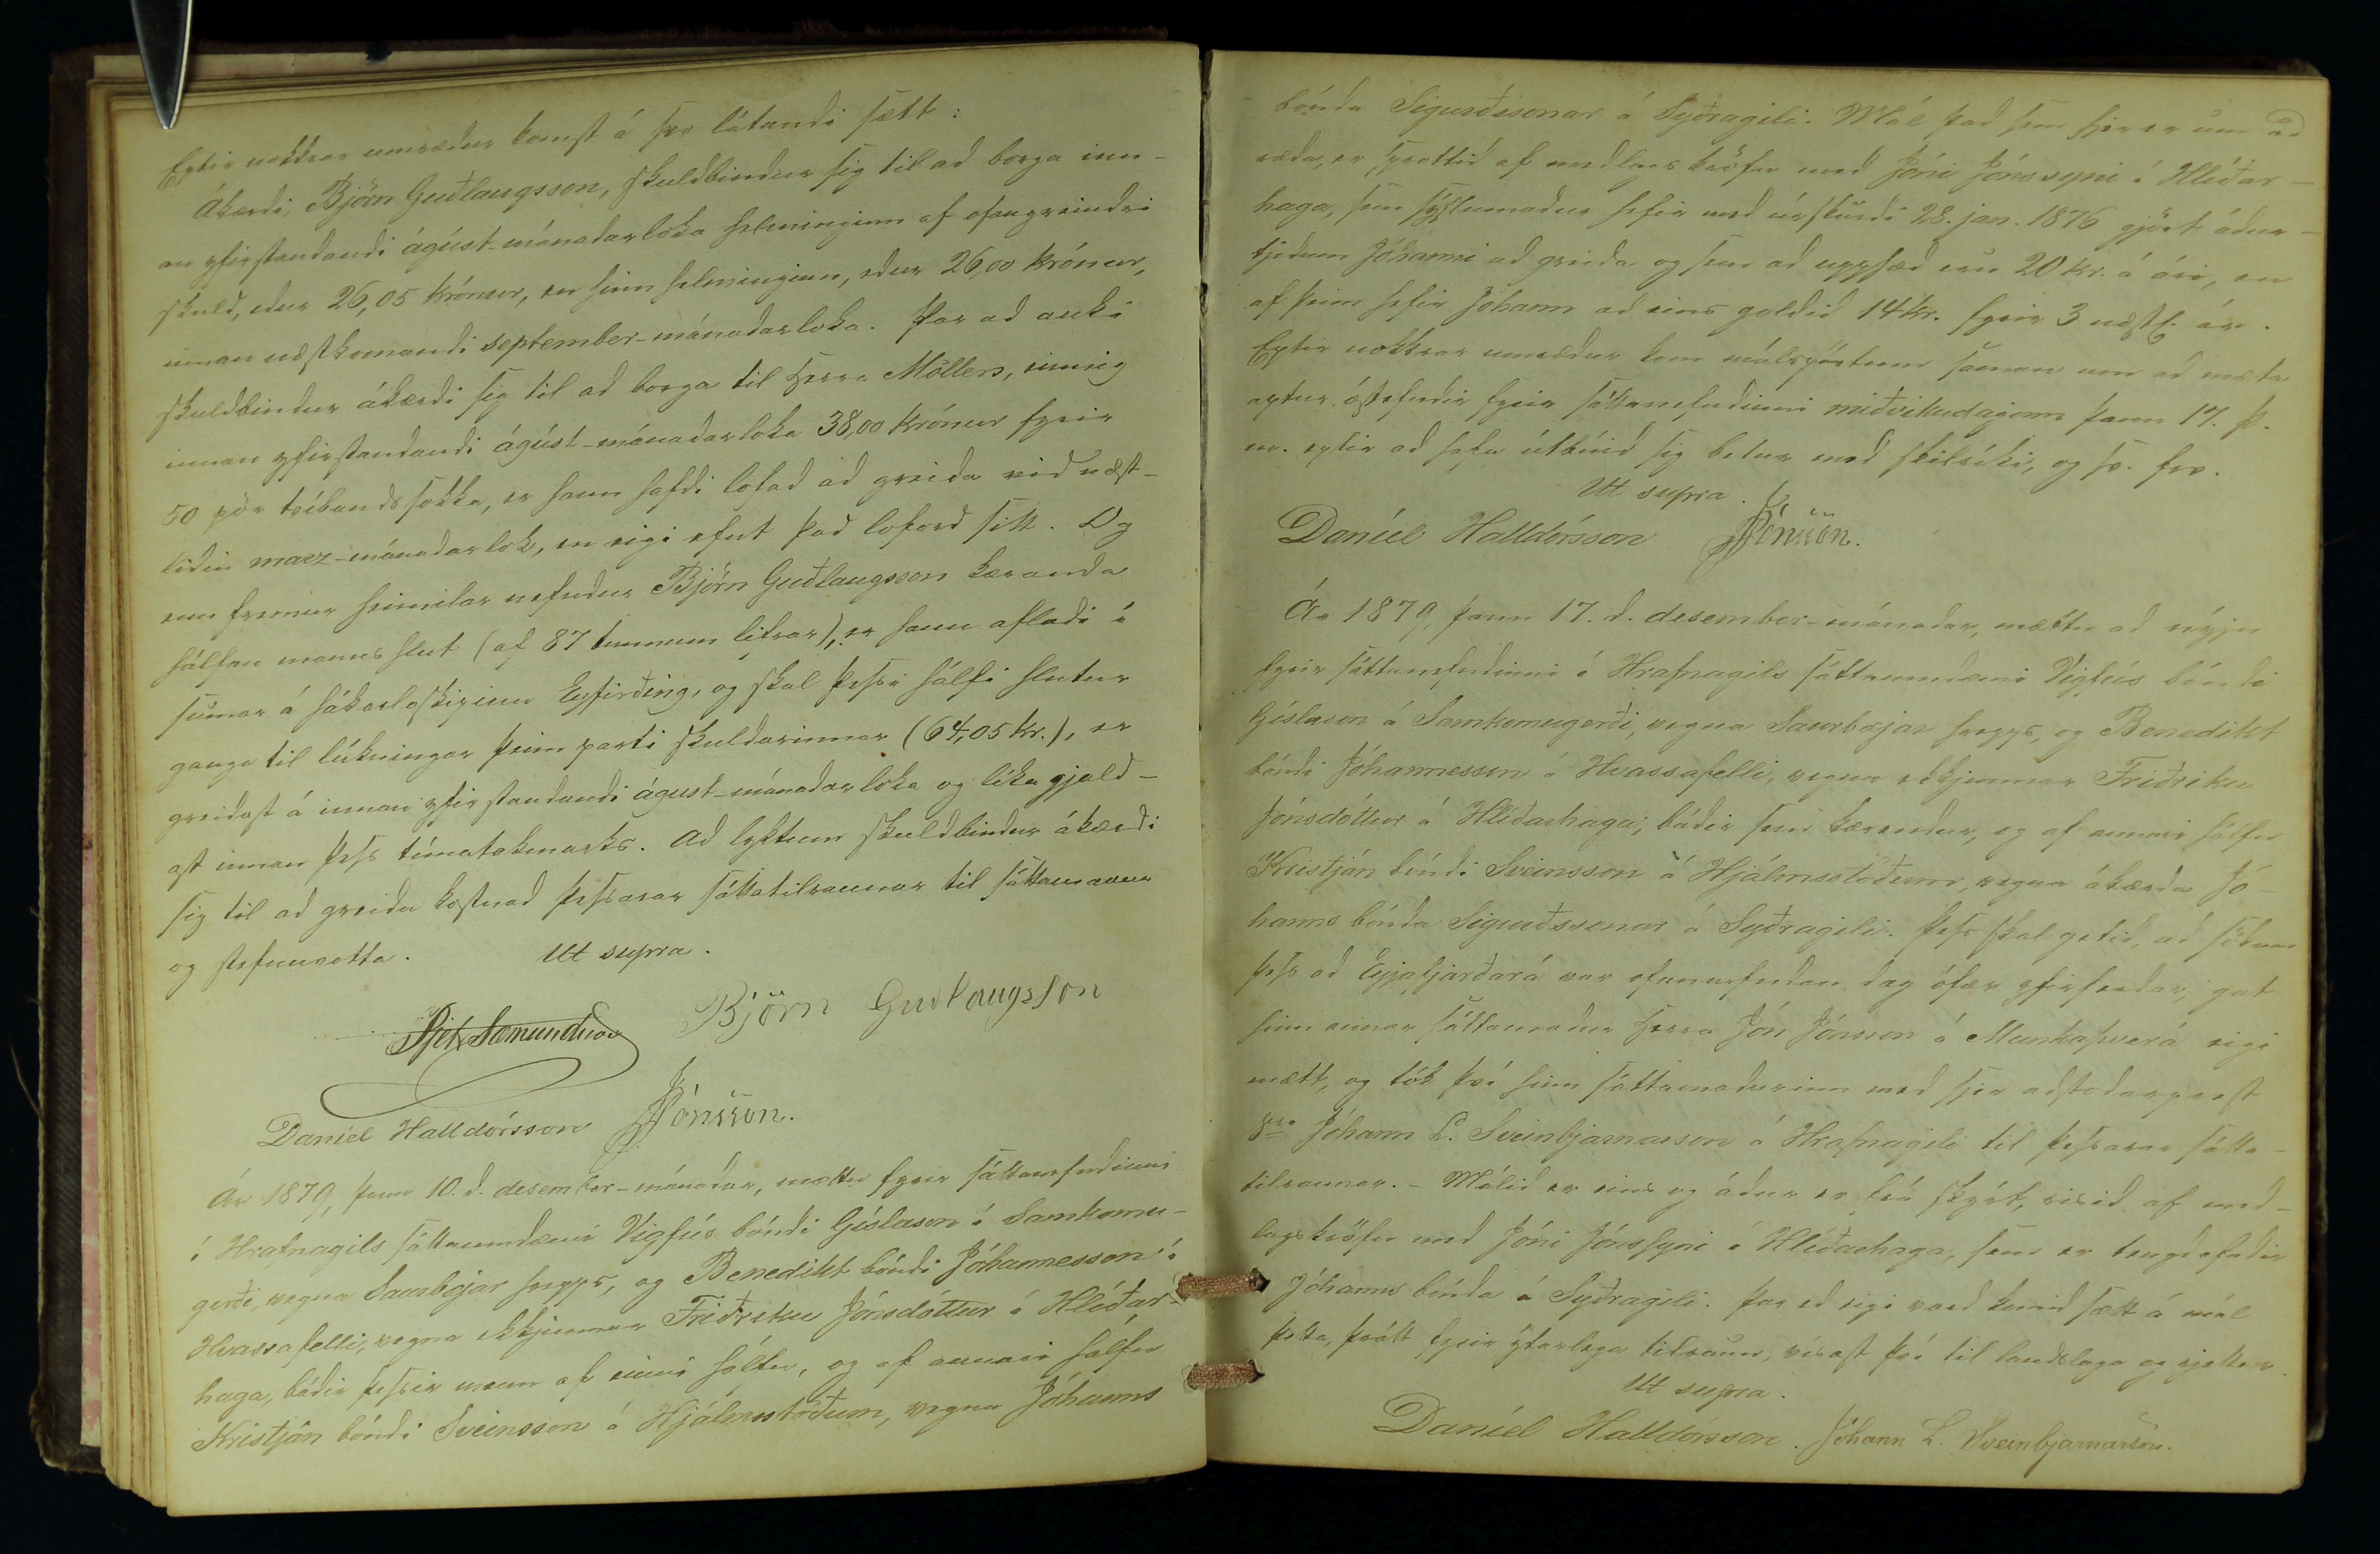 Eptir nokkrar umrædur komst á svo látandi sætt:
Ákærdi, Björn Guðlaugsson, skuldbindur sig til ad borga inn-
an yfirstandandi ágúst-mánadarloka helminginn af ofangreindri
skuld, edur 26,05 krónur, en hinn helminginn, edur 26,00 krónur,
innan næstkomandi september-mánadarloka. Þar ad auki
skuldbindur ákærdi sig til ad borga til Herra Möllers, einnig
innan yfirstandandi ágúst-mánadarloka 38,00 krónur fyrir
50 pör tvíbandssokka, er hann hafdi lofad ad greida vid næst-
lidin marz-mánadarlok, en eigi efnt það loford sitt. Og
enn fremur heimilar nefndur Björn Guðlaugsson kæranda
hálfan manns hlut (af 87 tunnum lifrar), er hann afladi í
sumar á hákarlaskipinu Eyfirðing, og skal þessi hálfi hlutur
ganga til lúkningar þeim parti skuldarinnar (64,05 kr.), er
greidast á innan yfirstandandi ágúst-mánadarloka og líka gjald-
ast innan þess tímatakmarks. Ad lyktum skuldbindur ákærdi
sig til ad greida kostnad þessarar sáttatilraunar til sáttamanna
og stefnuvotta. Ut supra.
Pjetr Sæmundsen Björn Gudlaugsson
Daníel Halldórsson JJónsson.
Ár 1879, þann 10. d. desember-mánadar, mættu fyrir sáttanefndinni
í Hrafnagils sáttaumdæmi Vigfús bóndi Gíslason í Samkomu-
gerði, vegna Saurbæjar hrepps, og Benedikt bóndi Jóhannesson í
Hvassafelli, vegna ekkjunnar Friðriku Jónsdóttur í Hlíðar-
haga, bádir þessir menn af einni hálfu, og af annari hálfu
Kristján bóndi Sveinsson á Hjálmsstöðum, vegna Jóhanns
bónda Sigurðssonar á Syðragili. Mál þad sem hjer er um ad
ræda, er sprottid af medlagskröfu med Jóni Jónssyni í Hlíðar-
haga, sem sýslumadur hefir med úrskurdi 28. jan. 1876 gjört ádur-
tjedum Jóhanni ad greida og sem ad upphæd eru 20 kr. á ári, en
af þeim hefir Jóhann ad eins goldid 14 kr. fyrir 3 næstl. ár.
Eptir nokkrar umrædur kom málspörtum saman um ad mæta
aptur óstefndir fyrir sáttanefndinni miðvikudaginn þann 17. þ.
m. eptir ad hafa útbúid sig betur med skilríki, og sv. frv.
Ut supra.
Daníel Halldórsson JJónsson.
Ár 1879, þann 17. d. desember-mánadar, mættu ad nýju
fyrir sáttanefndinni í Hrafnagils sáttaumdæmi Vigfús bóndi
Gíslason á Samkomugerði, vegna Saurbæjar hrepps, og Benedikt
bóndi Jóhannesson á Hvassafelli, vegna ekkjunnar Friðriku
Jónsdóttur á Hlíðarhaga, bádir sem kærendur, og af annari hálfu
Kristján bóndi Sveinsson á Hjálmsstöðum, vegna ákærda Jó-
hanns bónda Sigurðssonar á Syðragili. Þess skal getid, ad sökum
þess ad Eyjafjarðará var ofannefndan dag ófær yfirferdar, gat
hinn annar sáttamadur Herra Jón Jónsson á Munkaþverá eigi
mætt, og tók því hinn sáttamadurinn med sjer adstodarprest
sra Jóhann L. Sveinbjarnarson á Hrafnagili til þessarar sátta-
tilraunar. - Málid er eins og ádur er frá skýrt, risid af med-
lagskröfu med Jóni Jónssyni í Hlíðarhaga, sem er tengdafadir
Jóhanns bónda á Syðragili. Þar ed eigi vard komid sætt á mál
þetta, þrátt fyrir ýtarlega tilraun, vísast því til landslaga og rjettar.
Ut supra.
Daníel Halldórsson. Jóhann L. Sveinbjarnarson.